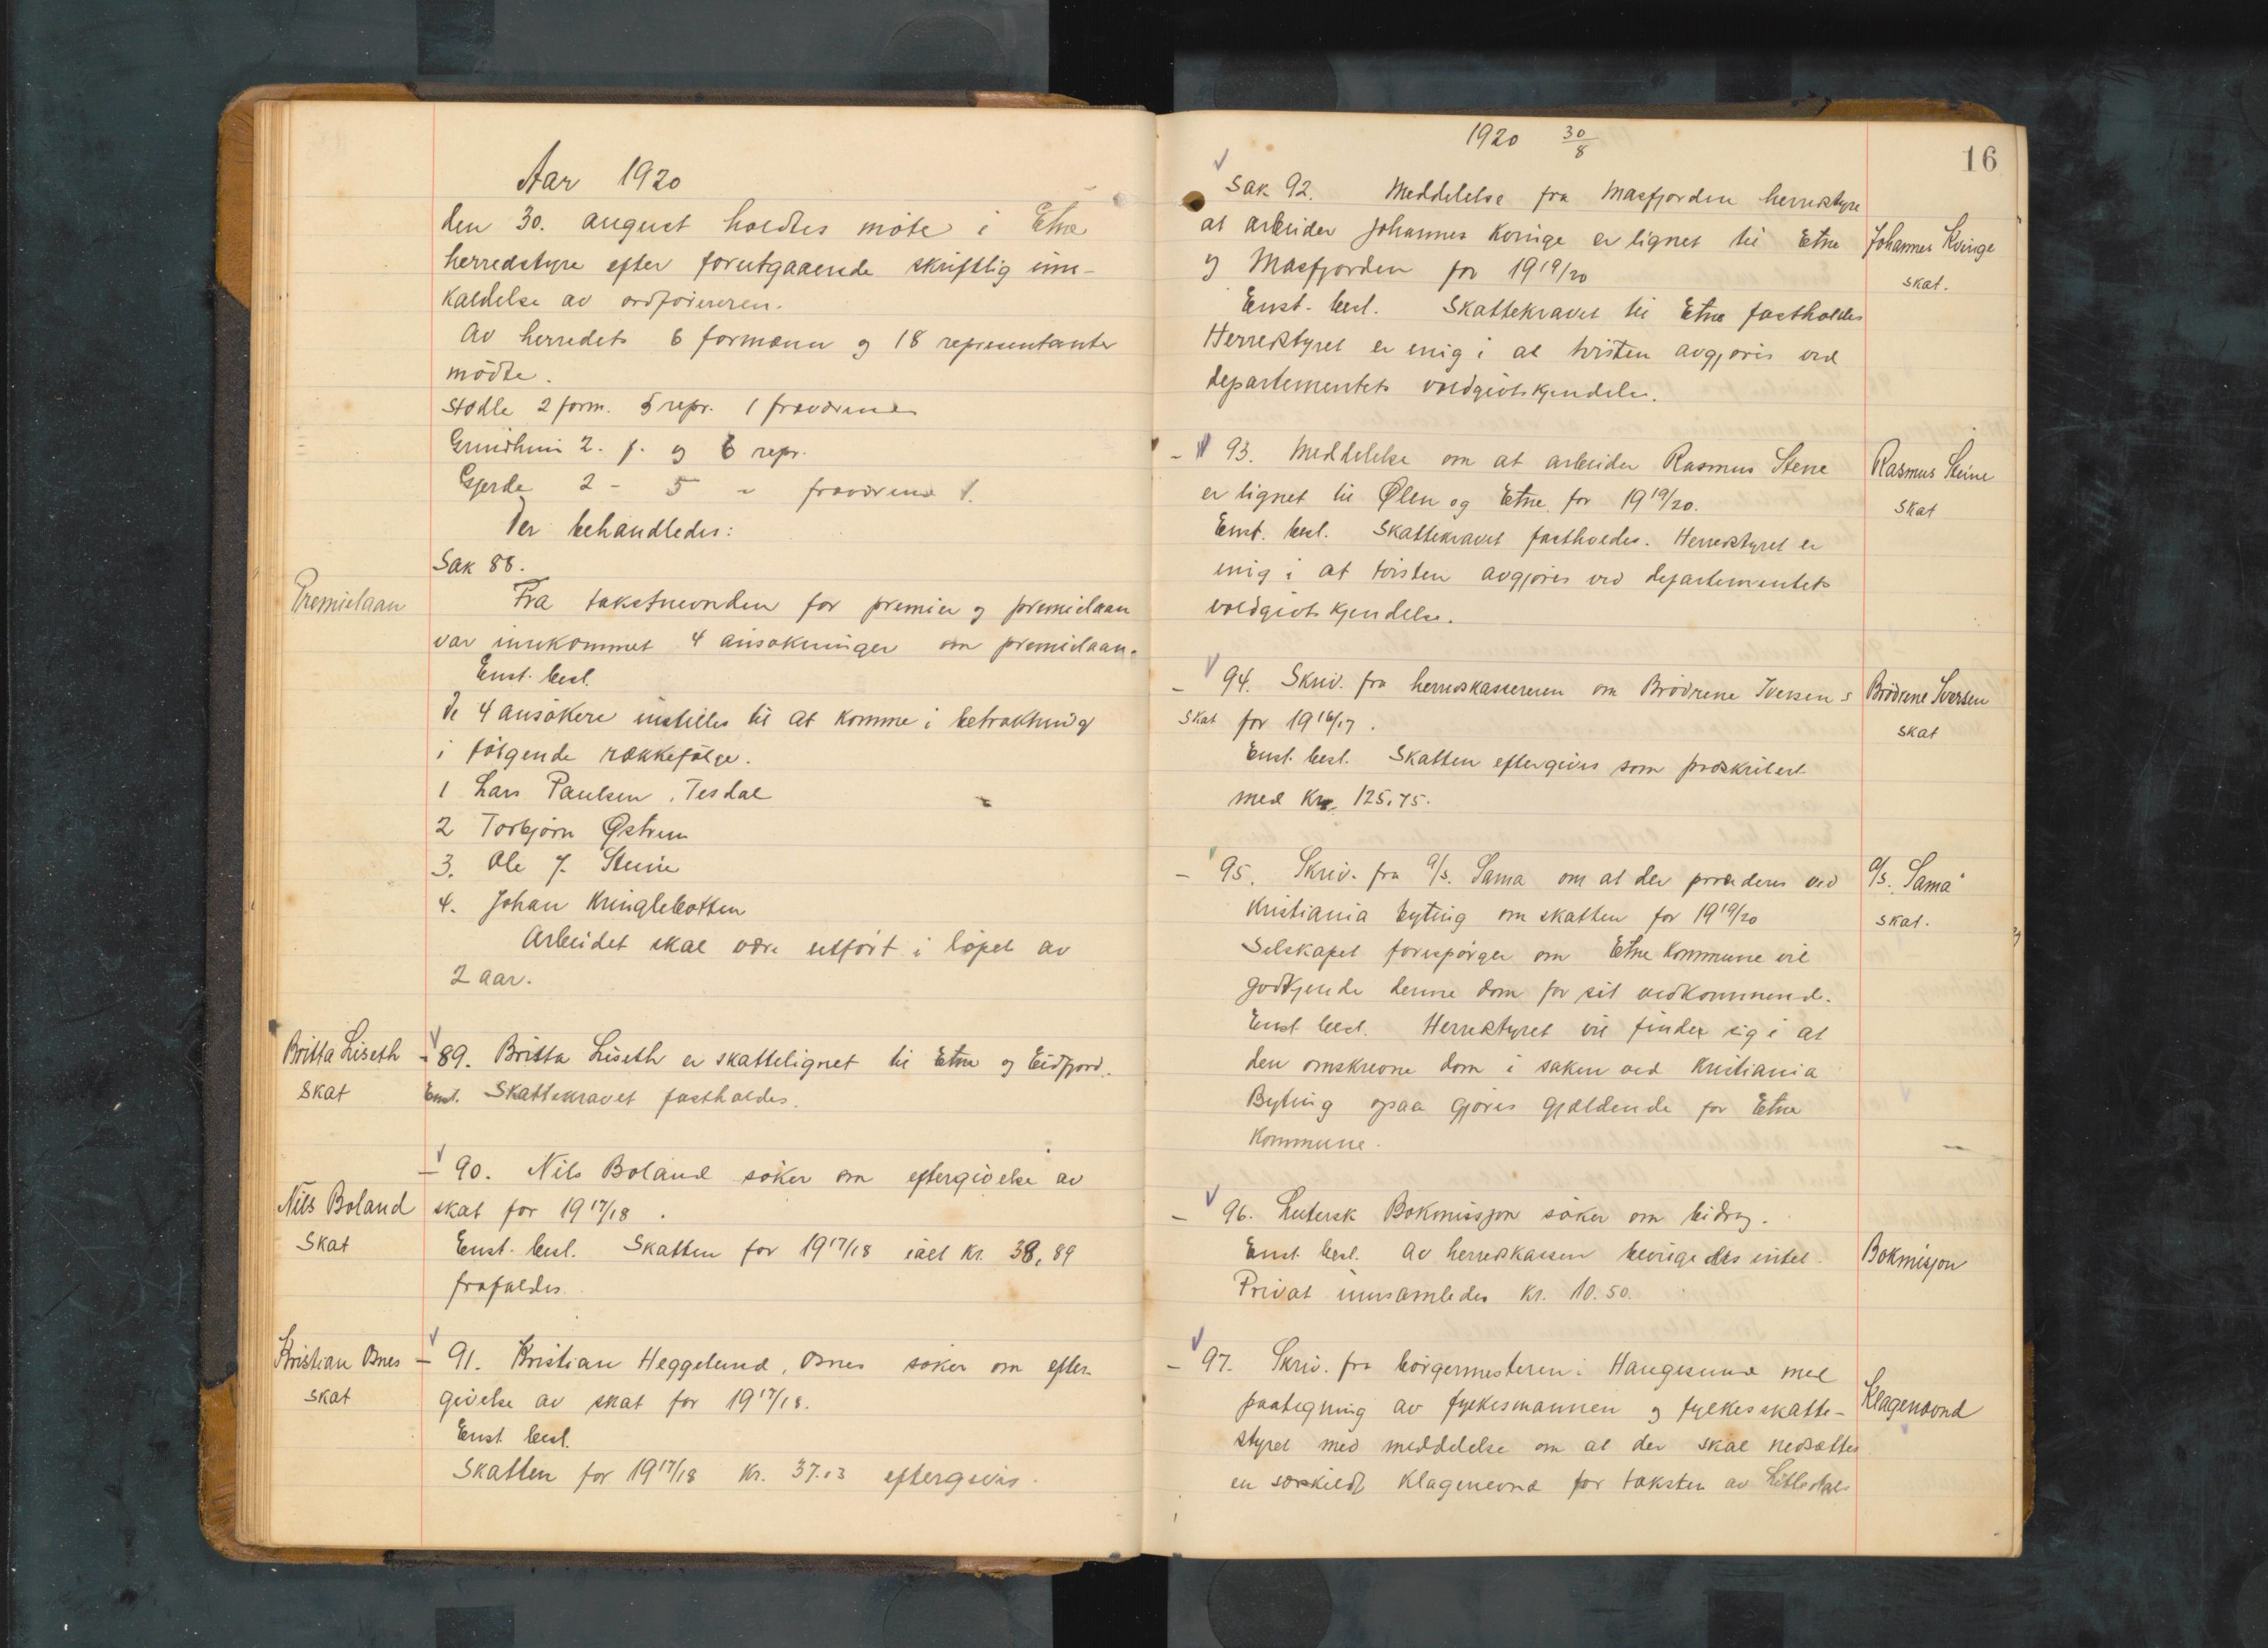 Aar 1920
den 30. august holdtes møte i Etne
herredstyre efter forutgaaende skriftlig inn-
kaldelse av ordføreren.
Av herredets 6 formænn og 18 representanter
mødte.
Stødle 2 form. 5 repr. 1 fraværende
Grindheim 2. f. og 6 repr.
Gjerde 2 - 5 " fraværend 1.
Der behandledes:
Sak 88.
Premielaan
Fra takstnevnden for premier og premielaan
var innkommet 4 ansøkninger om premielaan.
Enst. besl.
De 4 ansøkere instilles til at komme i betraktning
i følgende rækkefølge.
1 Lars Paulsen, Tesdal
2 Torbjørn Østrem
3. Ole J. Steine
4. Johan Kringlebotten
Arbeidet skal være utført i løpet av
2 aar.
Britta Liseth
Skat
- 89. Britta Liseth er skattelignet til Etne og Eidfjord.
Enst. Skattekravet fastholdes.
Nils Boland
Skat
- 90. Nils Boland søker om eftergivelse av
skat for 1917/18.
Enst. besl. Skatten for 1917/18 ialt Kr. 38,89
frafaldes.
Kristian Osnes
skat
- 91. Kristian Heggelund, Osnes søker om efter-
givelse av skat for 1917/18.
Enst. besl.
Skatten for 1917/18 Kr. 37.13 eftergives.
1920 30/8
16
Sak 92. Meddelelse fra Masfjorden herredstyre
at arbeider Johannes Kvinge er lignet til Etne
og Masfjorden for 1919/20
Johannes Kvinge
skat.
Enst. besl. Skattekravet til Etne fastholdes
Herredstyret er enig i at tvisten avgjøres ved
departementets voldgivtskjendelse.
- 93. Meddelelse om at arbeider Rasmus Stene
er lignet til Ølen og Etne for 1919/20.
Rasmus Steine
Skat
Enst. besl. Skattekravet fastholdes. Herredstyret er
enig i at tvisten avgjøres ved departementets
voldgivts kjendelse.
- 94. Skriv. fra herredskassereren om Brødrene Iversens
skat for 1916/17.
Brødrene Iversen
skat
Enst. besl. Skatten eftergives som preskribert
med Kr. 125,75.
- 95. Skriv. fra A/S. Sama om at der procederes ved
Kristiania byting om skatten for 1919/20
A/S. "Sama"
skat.
Selskapet forespørger om Etne Kommune vil
godkjende denne dom for sit vedkommende.
Enst. besl. Herredstyret vil finde sig i at
den omskrevne dom i saken ved Kristiania
Byting ogsaa gjøres gjældende for Etne
Kommune.
- 96. Lutersk Bokmissjon søker om bidrag.
Enst. besl. Av herredskassen bevilgedes intet.
Bokmisjon
Privat innsamledes Kr. 10.50.
- 97. Skriv. fra borgermesteren i Haugesund med
paategning av fylkesmannen og fylkesskatte-
Klagenævnd
styret med meddelelse om at der skal nedsættes
en særskildt Klagenevnd for taksten av Litledals